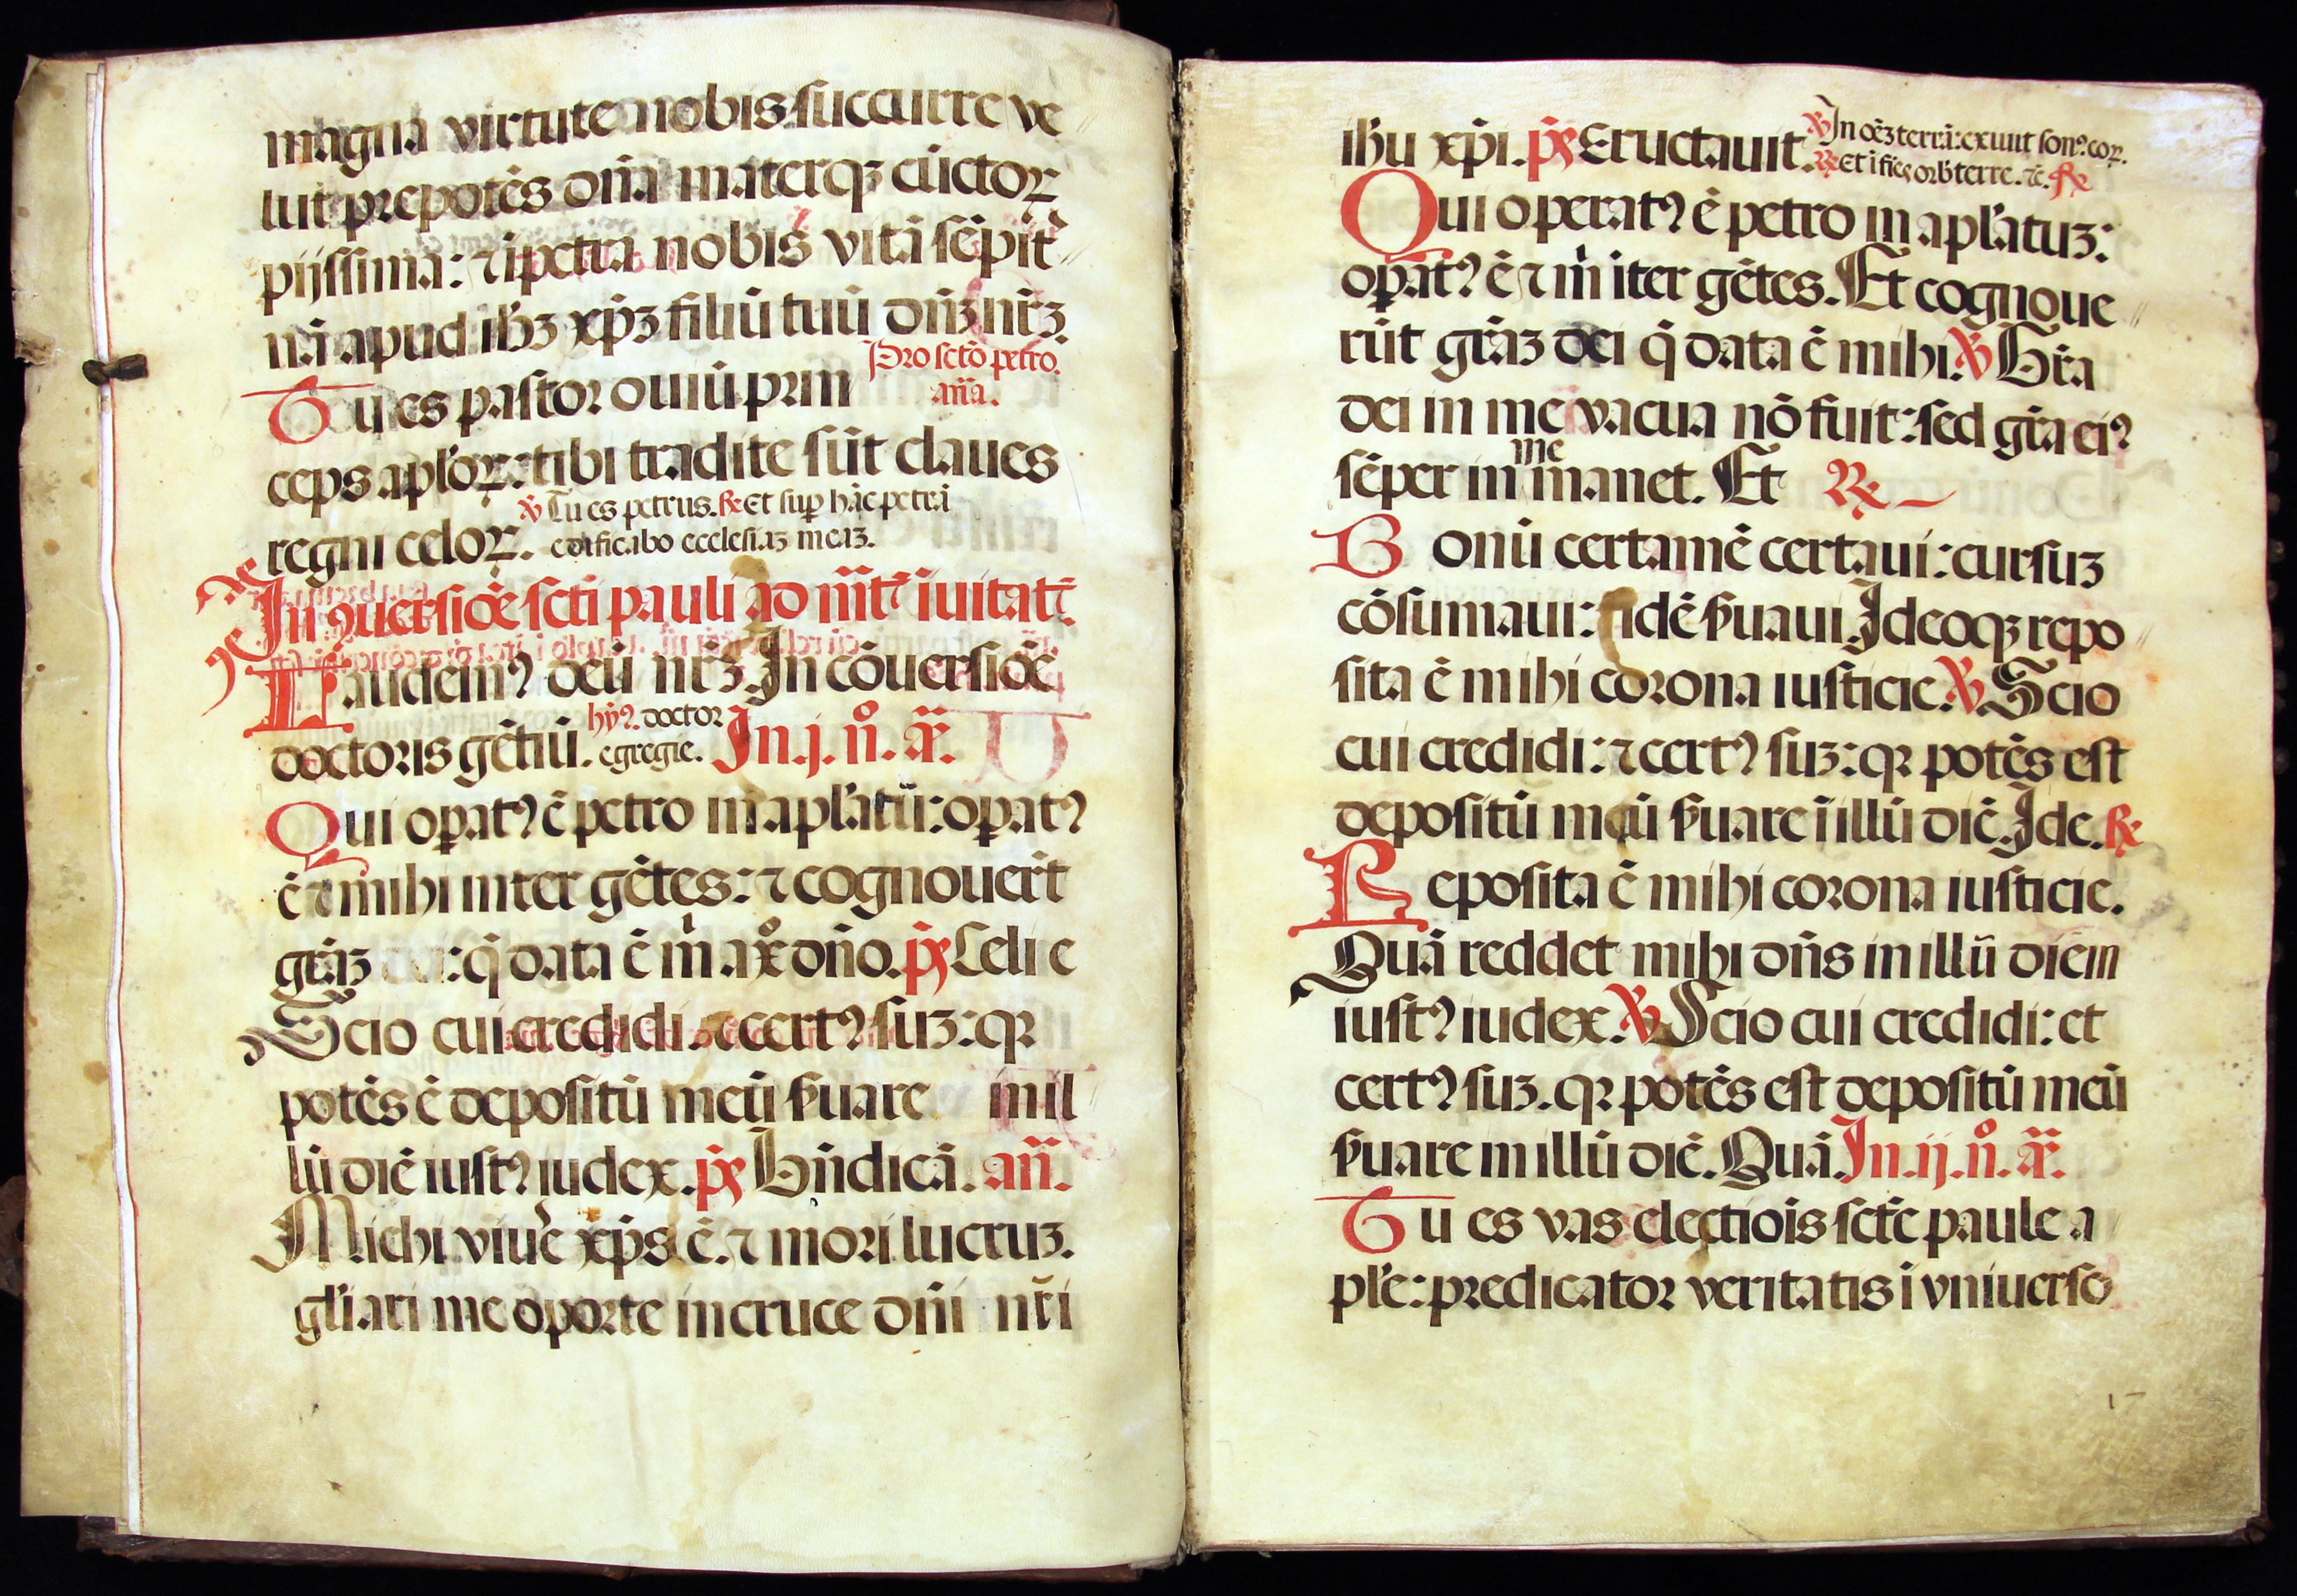 magnā virtute nobis succurre ve
lut prepotēs dn̄a materqꝫ cūctoꝝ
pijssima: ⁊ ip̄etra nobis vitā sēpit̄
nā apud ih̄ꝫ xp̄ꝫ filiū tuū dn̄ꝫ nr̄ꝫ.
Pro sctō petro.
an̄a.
Tu es pastor ouiū prin
ceps apl'oꝝ: tibi tradite sūt claues
℣ Tu es petrus. ℟ Et sup̱ hāc petrā
regni celoꝝ. edificabo ecclesiaꝫ meaꝫ.
In ꝯuersiōe sctī pauli ad mt̄ īuitat̄.
Laudemꝰ deū nr̄ꝫ In cōuersiōe
doctoris gētiū. hy̅ꝰ. doctor egregie. In .j. n̊. a̅.
Qui op̱atꝰ ē petro in apl'atū: op̱atꝰ
ē ⁊ mihi inter gētes: ⁊ cognouer̄t
gr̄aꝫ dei: q̄ data ē m̍ a xp̊ dn̄o. p̄s Celi e
Scio cui credidi. ⁊ certꝰ suꝫ: qꝛ
potēs ē depositū meū ẜuare in il
lū diē iustꝰ iudex. p̄s Bn̄dicā. an̄.
Michi viuē xp̄s ē. ⁊ mori lucruꝫ.
gl'iari me oporte in cruce dn̄i nr̄i
ih̄u xp̄i. p̄s Eructauit. ℣ In oēꝫ terrā: exiuit sonꝰ. coꝝ.
℟ Et ī fīes orb̄ terre. ⁊c̄. ℟
Qui operatꝰ ē petro in apl'atuꝫ:
op̱atꝰ ē ⁊ m̍ īter gētes. Et cognoue
rūt gr̄aꝫ dei q̄ data ē mihi. ℣ Gr̄a
dei in me vacua nō fuit: sed gr̄a eiꝰ
me
sēper in manet. Et ℟
Bonū certamē certaui: cursuꝫ
cōsumaui: fidē ẜuaui. Ideoqꝫ repo
sita ē mihi corona iusticie. ℣ Scio
cui credidi: ⁊ certꝰ suꝫ: qꝛ potēs est
depositū meū ẜuare ī illū diē. Ide. ℟
Reposita ē mihi corona iusticie.
Quā reddet mihi dn̄s in illū diem
iustꝰ iudex. ℣ Scio cui credidi: et
certꝰ suꝫ. qꝛ potēs est depositū meū
ẜuare in illū diē. Quā. In .ij. n̊. a̅.
Tu es vas electiōis sctē paule a
pl'e: predicator veritatis ī vniuerso
17